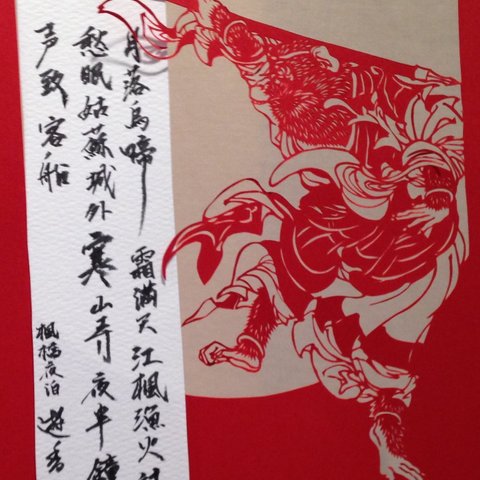 月落烏啼霜滿天江楓漁火對
愁眠姑蘇城外寒山寺夜半鐘
声到客船
楓橋夜泊